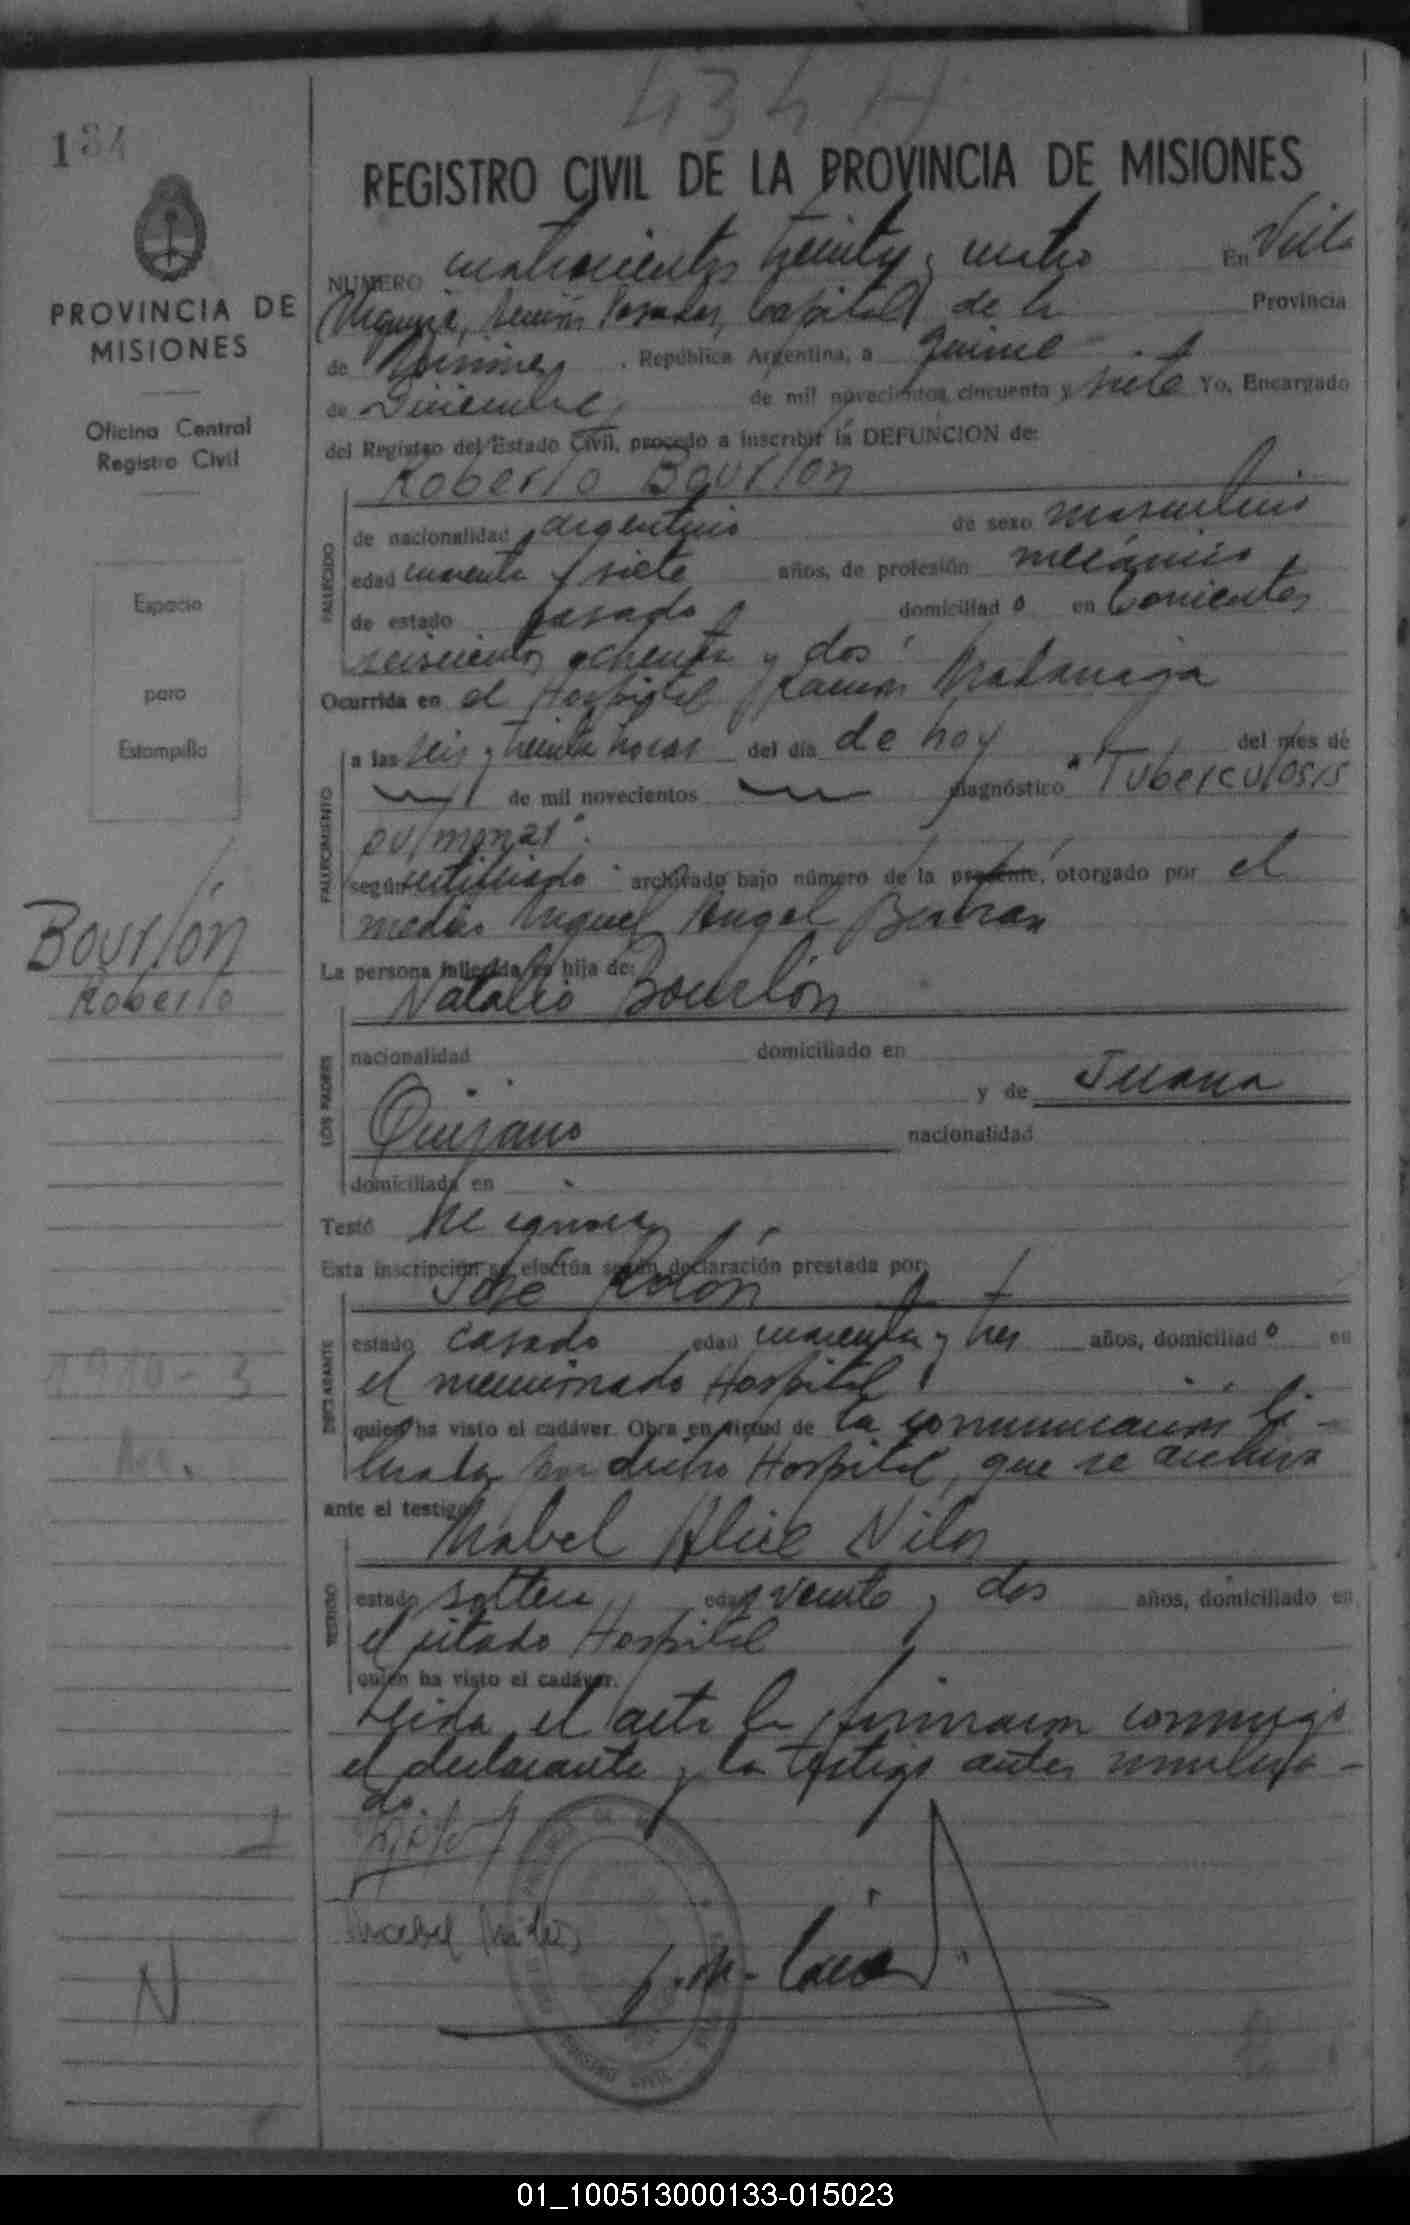 434 H
134
REGISTRO CIVIL DE LA PROVINCIA DE MISIONES
NUMERO cuatrocientos treinta y cuatro En Villa
Urquiza, Sección Posadas, Capital de la Provincia
de Misiones, República Argentina, a quince
de Diciembre de mil novecientos cincuenta y siete Yo, Encargado
del Registro del Estado Civil, procedo a inscribir la DEFUNCION de:
Roberto Bourlon
FALLECIDO
de nacionalidad argentino de sexo masculino
edad cuarenta y siete años, de profesión mecánico
de estado casado domiciliado en Corrientes
seiscientos ochenta y dos
Ocurrida en el Hospital Ramón Madariaga
FALLECIMIENTO
a las seis y treinta horas del día de hoy del mes de
de mil novecientos diagnóstico "Tuberculosis
pulmonar".
según certificado archivado bajo número de la presente, otorgado por el
médico Miguel Angel
La persona fallecida es hija de:
Natalio Bourlón
LOS PADRES
nacionalidad domiciliado en
y de Juana
Quijano nacionalidad
domiciliada en
Testó Se ignora
Esta inscripción se efectúa según declaración prestada por:
José Rolón
DECLARANTE
estado casado edad cuarenta y tres años, domiciliado en
el mencionado Hospital
quien ha visto el cadáver. Obra en virtud de la comunicación li-
brada por dicho Hospital, que se archiva
ante el testigo
Mabel Alice
TESTIGO
estado soltera edad veinte y dos años, domiciliado en
el citado Hospital
quien ha visto el cadáver.
Leida el acta la firmaron conmigo
el declarante y la testigo antes nombra-
do.
PROVINCIA DE
MISIONES
Oficina Central
Registro Civil
Espacio
para
Estampilla
Bourlón
Roberto
1910-3
N
01_100513000133-015023